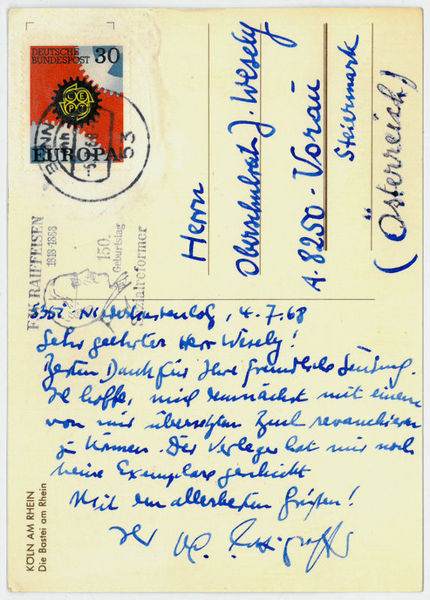 DEUTSCHE
BUNDESPOST
30
EUROPA
BONN
53
F.W. RAIFFEISEN
1818-1888
150.
Geburtstag
Sozialreformer
Herrn
Oberschulrat J. Wesely
A-8250-Vorau
Steiermark
(Österreich)
4.7.68
Sehr geehrter Herr Wesely!
Besten Dank für Ihre freundliche Sendung.
Ich hoffe, mich demnächst mit einem
von mir übersetzten Buch revanchieren
zu können. Der Verleger hat mir noch
keine Exemplare geschickt
Mit den allerbesten Grüßen!
Ihr
KÖLN AM RHEIN
Die Bastei am Rhein